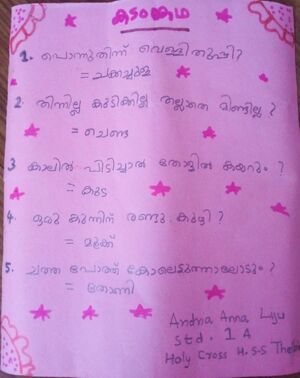 കടംങ്കഥ
1. പൊന്നുതിന്ന് വെള്ളിതുപ്പി?
= ചക്കച്ചുള
2. തിന്നില്ല കുടിക്കില്ല തല്ലാതെ മിണ്ടില്ല ?
= ചെണ്ട
3 കാലിൽ പിടിച്ചാൽ തോളിൽ കയറും ?
= കുട
4. ഒരു കുന്നിന് രണ്ടു കുഴി ?
= മൂക്ക്
5. ചത്ത പോത്ത് കോലെടുത്താലോടും ?
= തോണി
Andria Anna Liju
Std. 1 A
Holy Cross H.S.S